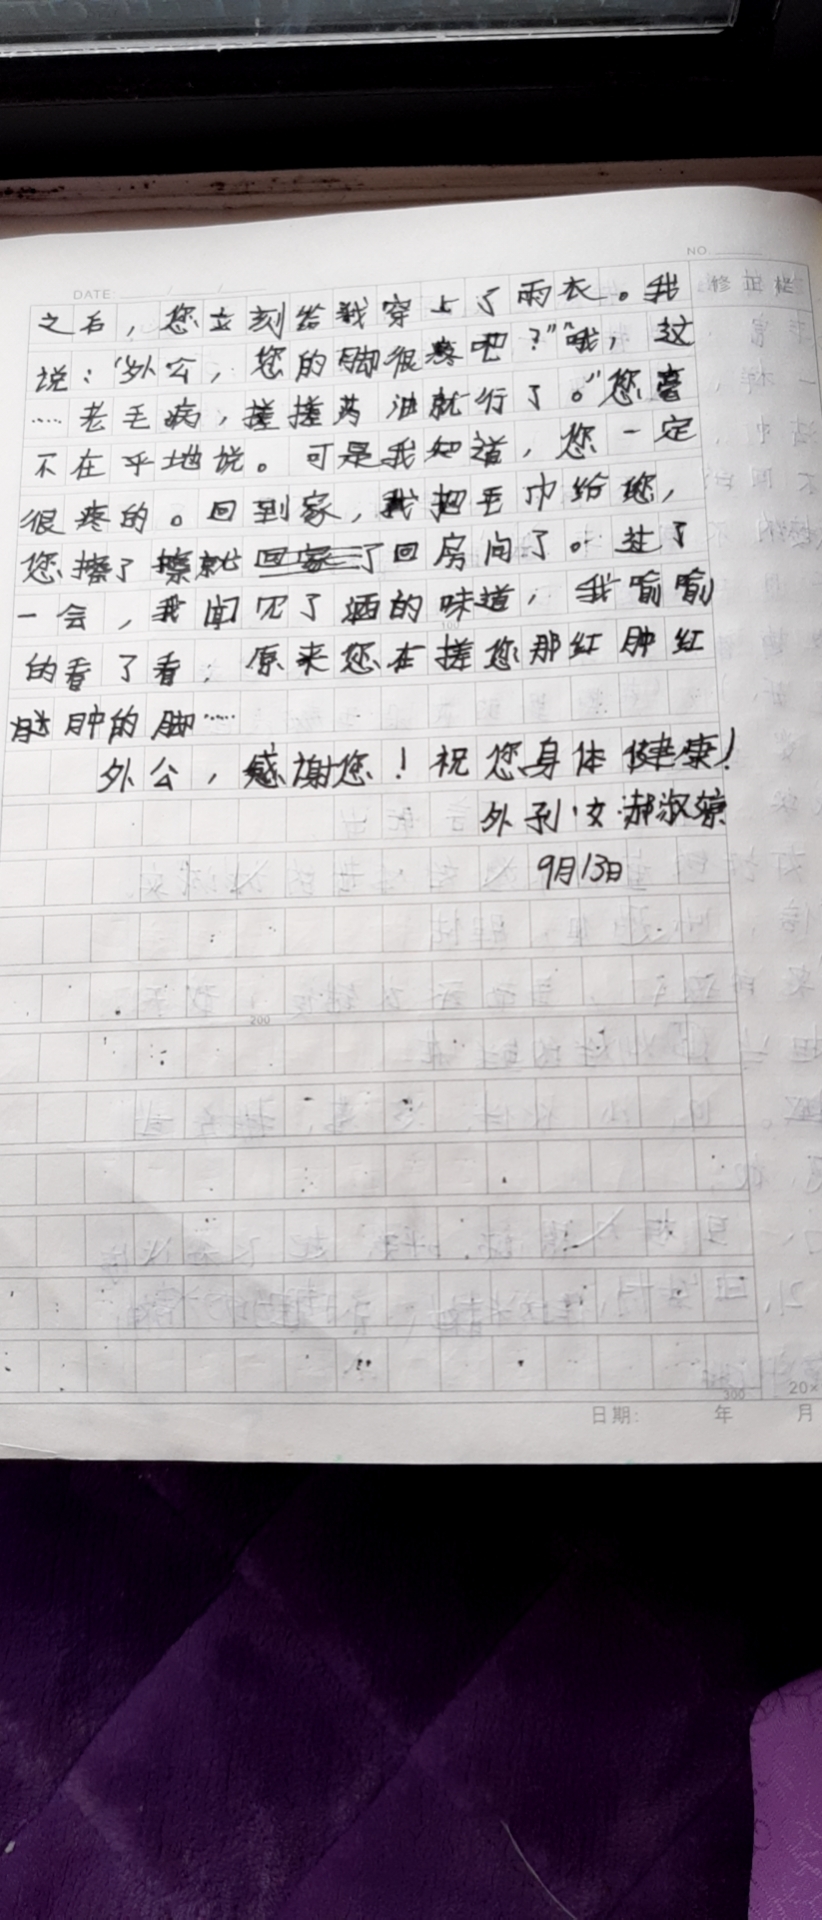 NO.
DATE
修正栏
之后，您立刻给我穿上了雨衣。我
说：“外公，您的脚很疼吧？”“哦，这
……老毛病，搓搓药油就行了。”您
不在乎地说。可是我知道，您一定
很疼的。回到家，我把毛巾给您，
您擦了擦就回家了回房间了。过了
一会，我闻见了酒的味道，我喻喻
的看了看，原来您在搓您那红肿红
肿的脚……
外公，感谢您！祝您身体健康！
外孙女：郝淑
9月13日
100
200
300
20×
日期： 年 月